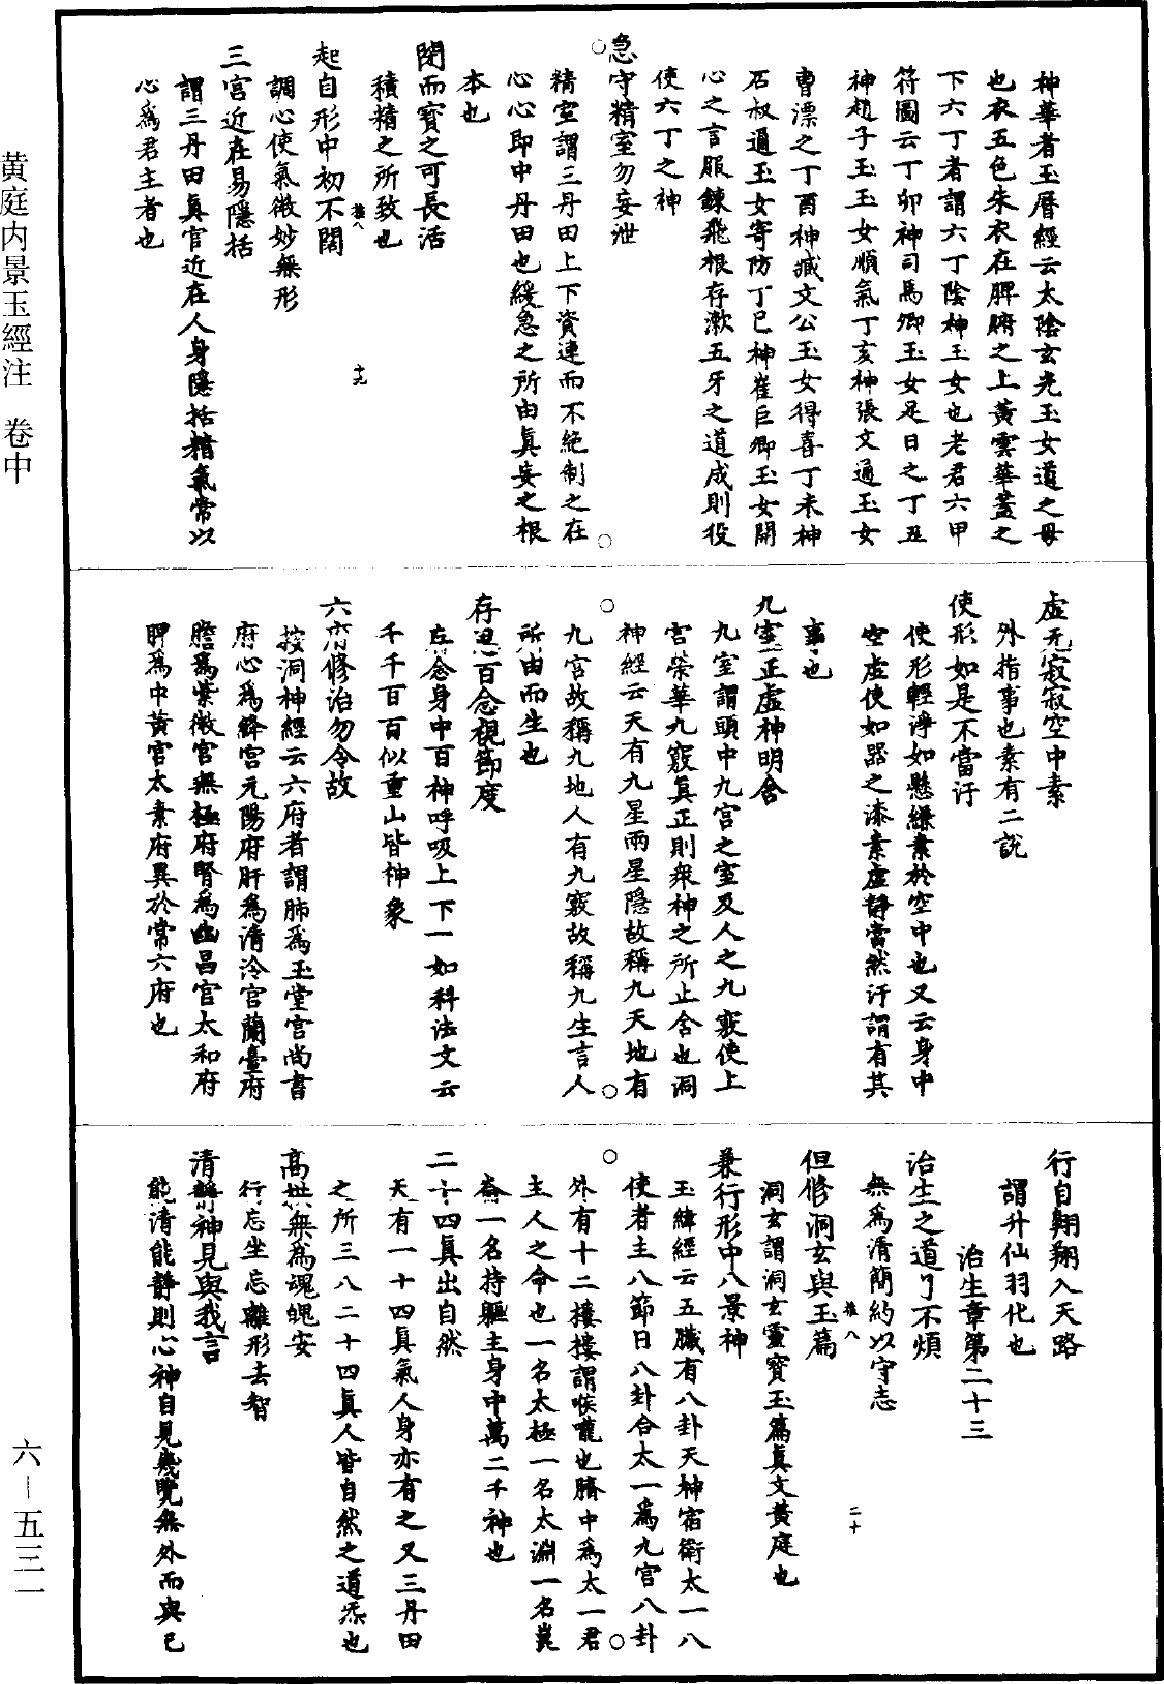 黄庭内景玉經注　卷中
神華者玉曆經云太陰玄光玉女道之母
也衣五色朱衣在脾腑之上黃雲華蓋之
下六丁者謂六丁陰神玉女也老君六甲
符圖云丁卯神司馬卿玉女足日之丁丑
神趙子玉玉女順氣丁亥神張文通玉女
曹漂之丁酉神臧文公玉女得喜丁未神
石叔通玉女寄防丁巳神崔巨卿玉女開
心之言服鍊飛根存漱五牙之道成則役
使六丁之神
急守精室勿妄泄
精室謂三丹田上下資連而不絶制之在
心心即中丹田也緩急之所由真妄之根
本也
閉而寶之可長活
積精之所致也
起自形中初不闊
調心使氣微妙無形
三宮近在易隱括
謂三丹田真官近在人身隱括精氣常以
心爲君主者也
十九
虛无寂寂空中素
外指事也素有二説
使形如是不當汙
使形輕淨如懸縑素於空中也又云身中
空虛使如器之漆素虛靜當然汙謂有其
事也
九室正虛神明舍
九室謂頭中九宮之室及人之九竅使上
宮榮華九竅真正則衆神之所止舍也洞
神經云天有九星兩星隱故稱九天地有
九宮故稱九地人有九竅故稱九生言人
所由而生也
存思百念視節度
存念身中百神呼吸上下一如科法文云
千千百百似重山皆神象
六府修治勿令故
按洞神經云六府者謂肺爲玉堂宮尚書
府心爲絳宮元陽府肝爲清泠宮蘭臺府
膽爲紫微宮無極府腎爲幽昌宮太和府
脾爲中黃宮太素府異於常六府也
行自翱翔入天路
謂升仙羽化也
治生章第二十三
治生之道了不煩
無爲清簡約以守志
但修洞玄與玉篇
洞玄謂洞玄靈寶玉篇真文黃庭也
二十
兼行形中八景神
玉緯經云五臟有八卦天神宿衛太一八
使者主八節日八卦合太一爲九宮八卦
外有十二樓樓謂喉嚨也臍中爲太一君
主人之命也一名太極一名太淵一名崑
崙一名持軀主身中萬二千神也
二十四真出自然
天有二十四真氣人身亦有之又三丹田
之所三八二十四真人皆自然之道炁也
高拱無爲魂魄安
行忘坐忘離形去智
清靜神見與我言
能清能靜則心神自見幾覽無外而與已
六－五三一